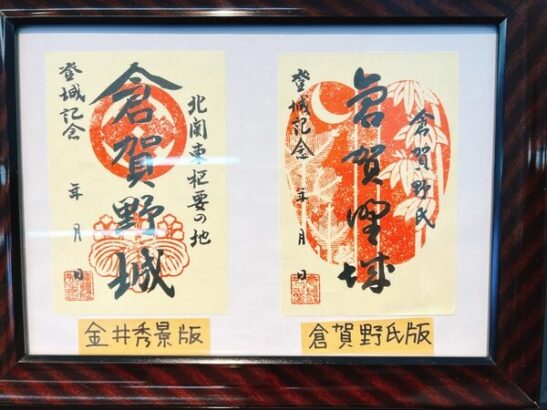 北関東枢要の地
倉賀野城
登城記念 年 月 日
金井秀景版
倉賀野氏
倉賀野城
登城記念 年 月 日
倉賀野氏版